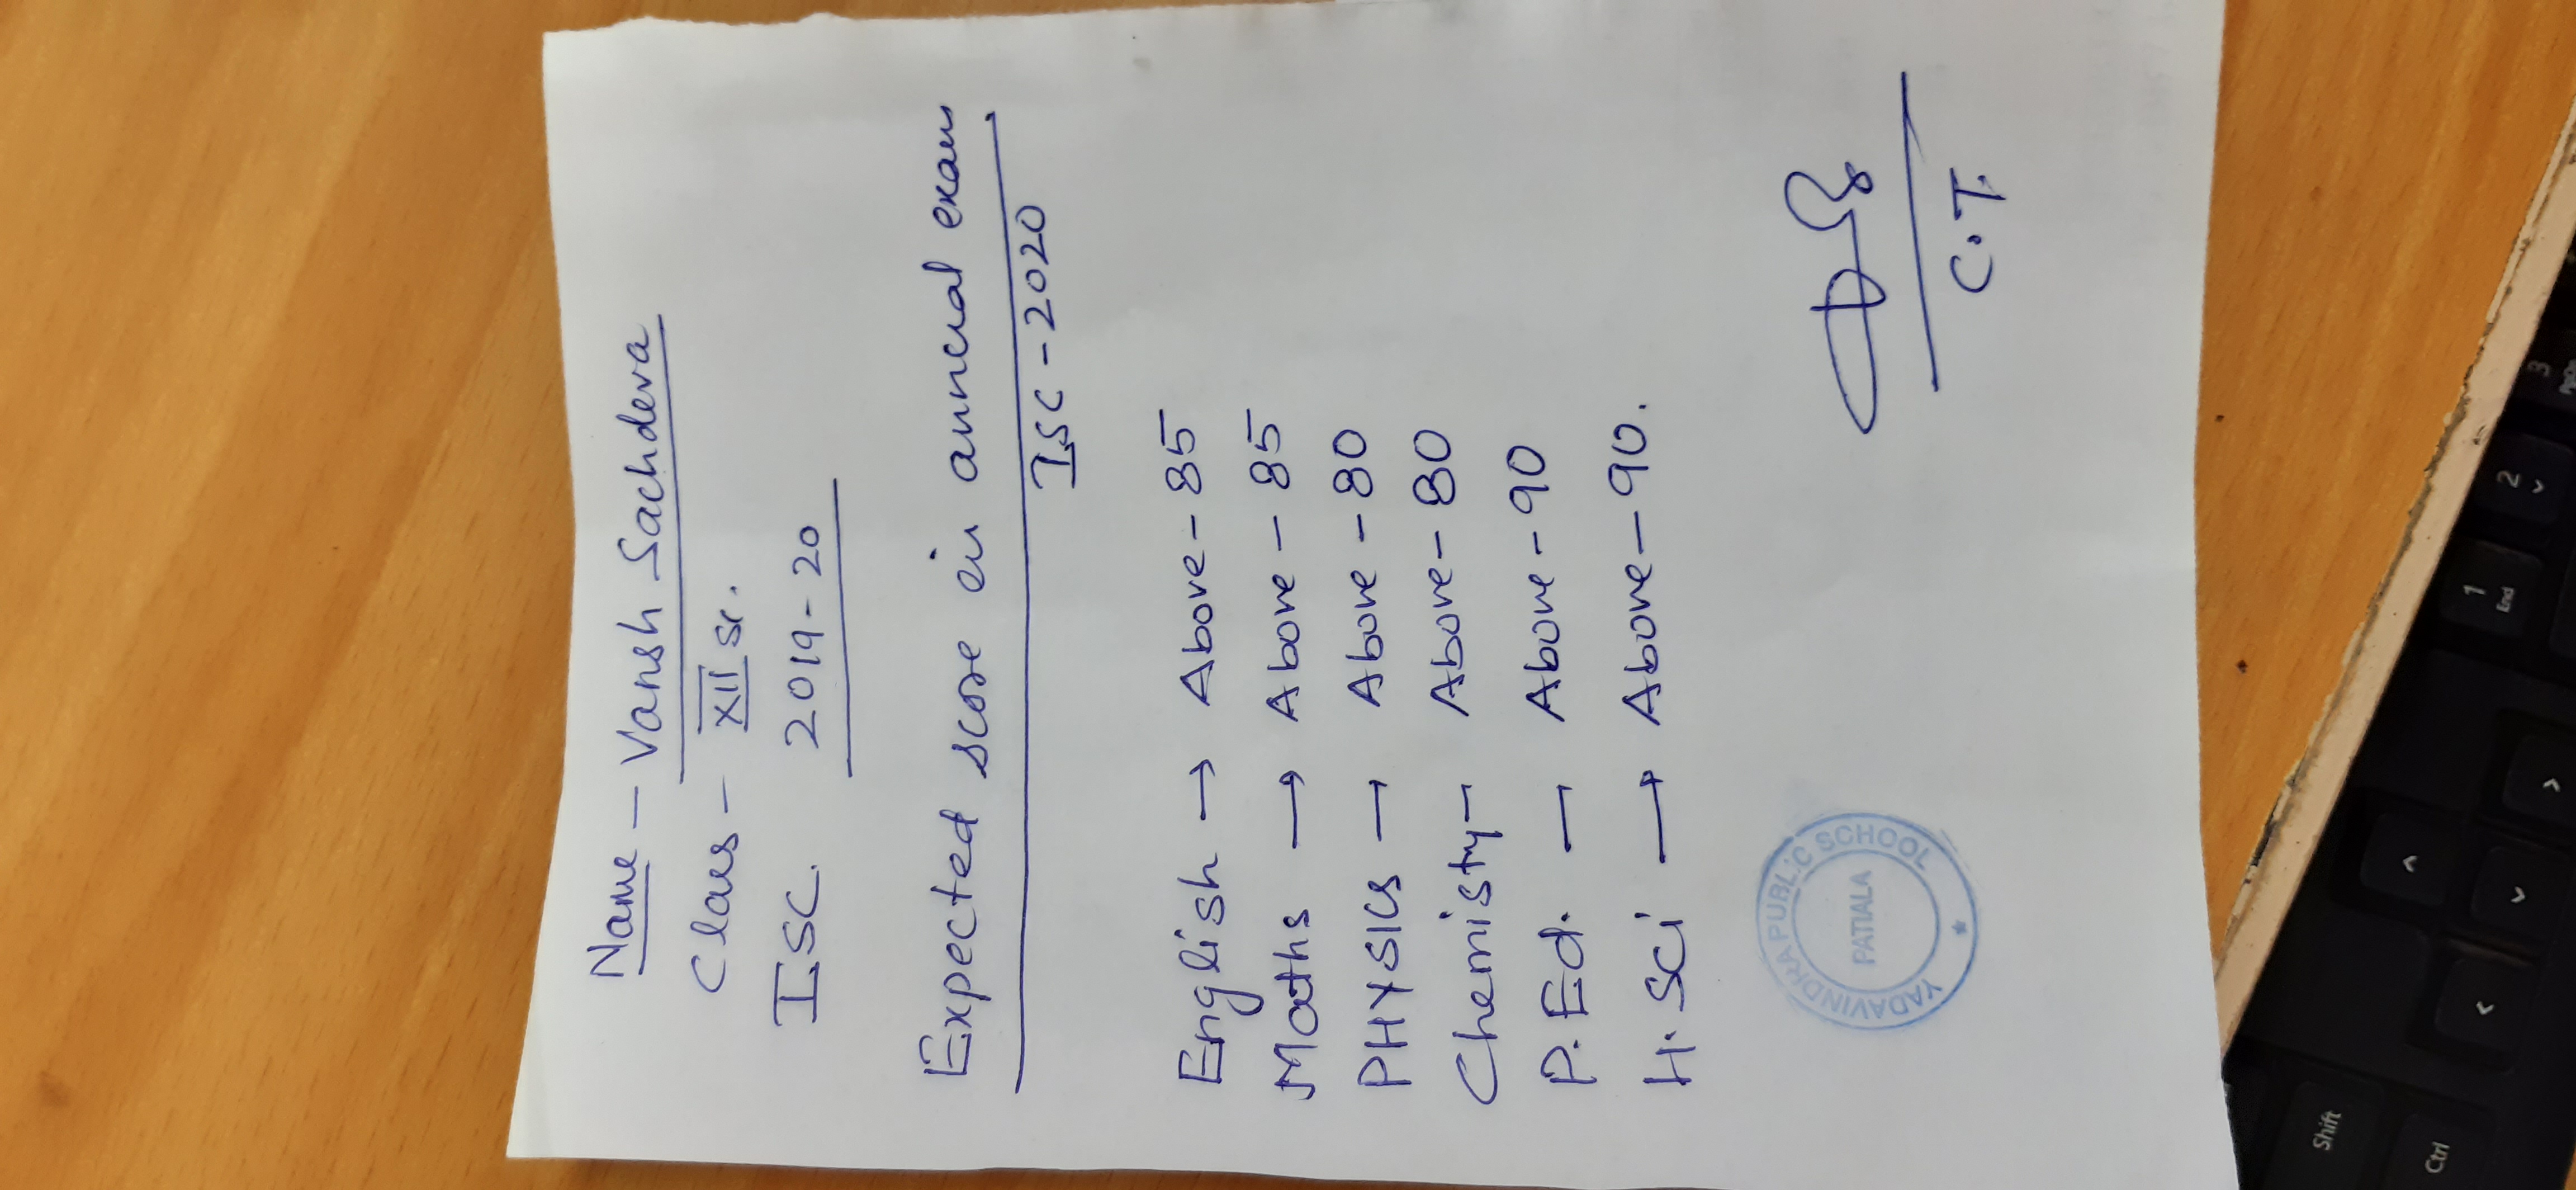 Name - Vansh Sachdeva
Class - XII Sc.
ISC. 2019-20
Expected score in annual exam
ISC - 2020
English → Above - 85
Maths → Above - 85
PHYSICS → Above - 80
Chemistry - Above - 80
P. Ed. — Above - 90
H. Sci → Above - 90.
C.T.
YADAVINDRA PUBLIC SCHOOL
PATIALA
Shift
Ctrl
1
End
2
3